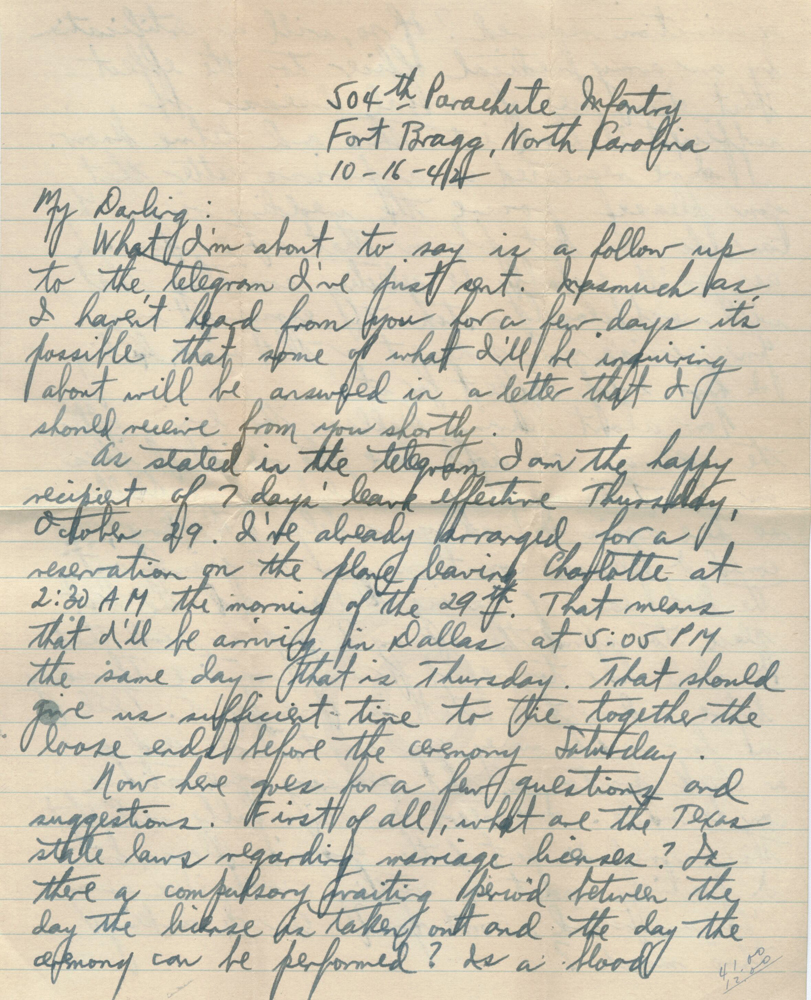 504th Parachute Infantry
Fort Bragg, North Carolina
10-16-42
My Darling:
What I'm about to say is a follow up
to the telegram I've just sent. Inasmuch as
I haven't heard from you for a few days it's
possible that some of what I'll be inquiring
about will be answered in a letter that I
should receive from you shortly.
As stated in the telegram I am the happy
recipient of 7 days' leave effective Thursday,
October 29. I've already arranged for a
reservation on the plane leaving Charlotte at
2:30 AM the morning of the 29th. That means
that I'll be arriving in Dallas at 5:05 PM
the same day - that is Thursday. That should
give us sufficient time to tie together the
loose ends before the ceremony Saturday.
Now here goes for a few questions and
suggestions. First of all, what are the Texas
state laws regarding marriage licenses? Is
there a compulsory waiting period between the
day the license is taken out and the day the
ceremony can be performed? Is a blood
41.00
12.00